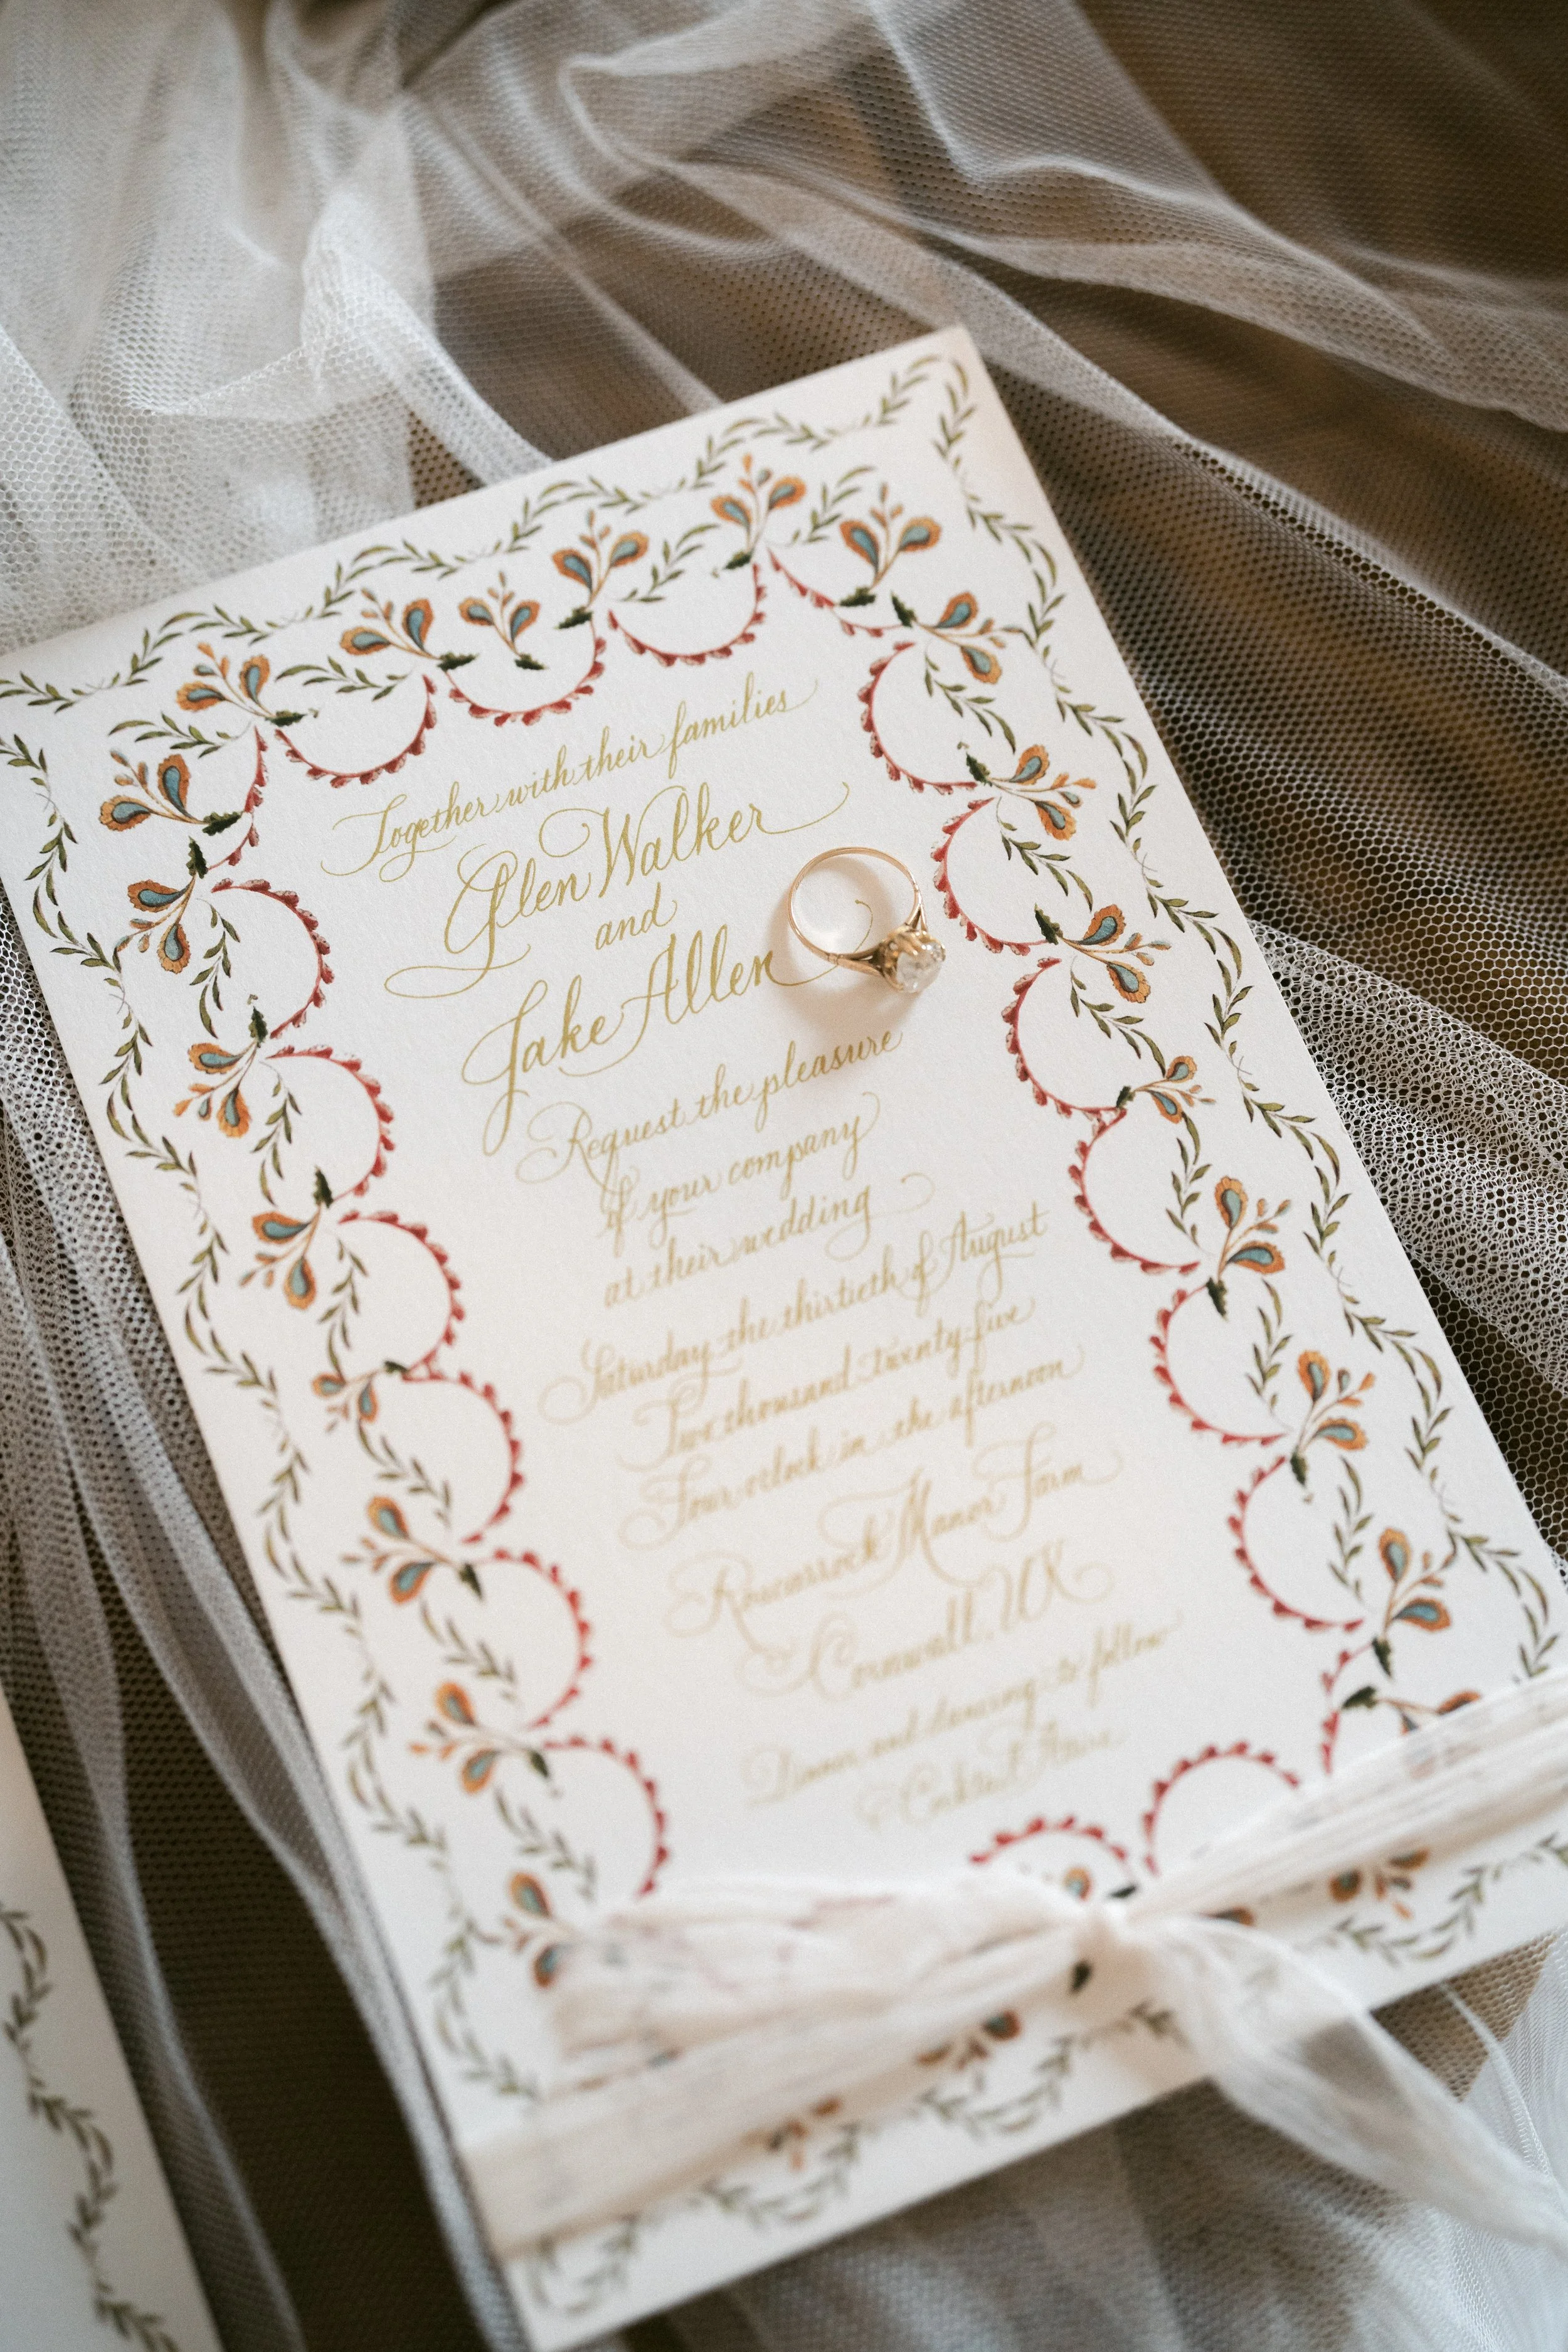 Together with their families
Glen Walker
and
Jake Allen
Request the pleasure
of your company
at their wedding
Saturday the thirtieth of August
Two thousand twenty-five
Four o'clock in the afternoon
Roscarrock Manor Farm
Cornwall, UK
Dinner and dancing to follow
Cocktail Attire